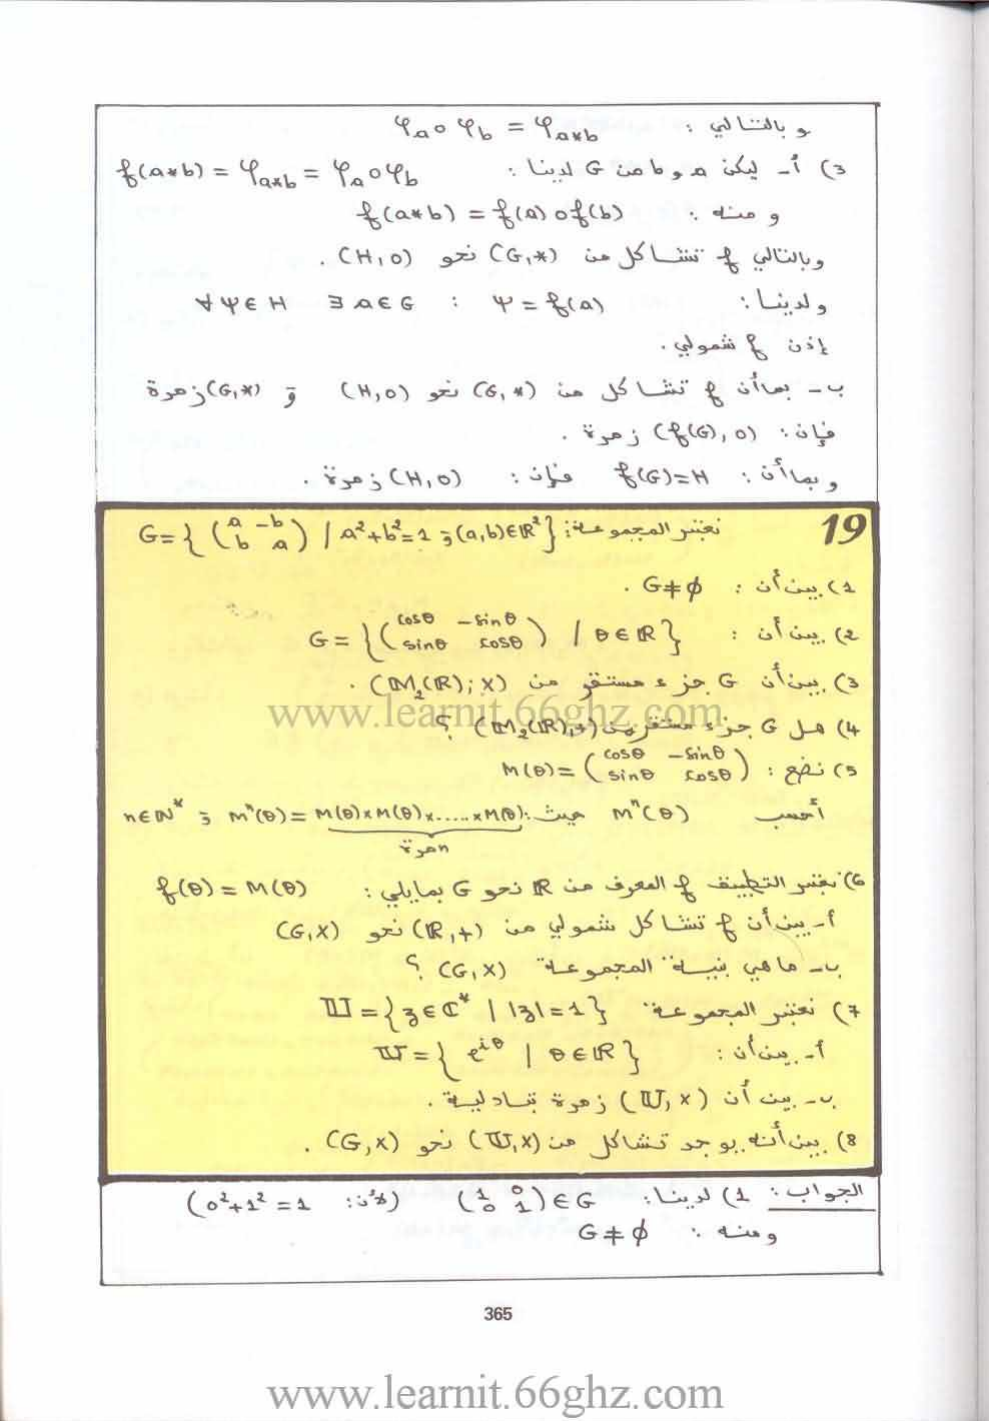 وبالتالي : φa∘φb = φa*b
3) أ- ليكن a و b من G لدينا : f(a*b) = φa*b = φa∘φb
ومنه : f(a*b) = f(a)∘f(b)
وبالتالي f تشاكل من (G,*) نحو (H,∘) .
ولدينا : ∀ψ∈H ∃a∈G : ψ = f(a)
إذن f شمولي .
ب- بما أن f تشاكل من (G,*) نحو (H,∘) و (G,*) زمرة
فإن : (f(G),∘) زمرة .
وبما أن : f(G)=H فإن : (H,∘) زمرة .
19 نعتبر المجموعة : G={ (a -b ; b a) / a²+b²=1 ; (a,b)∈ℝ² }
1) بين أن : G≠∅ .
2) بين أن : G = { (cosθ -sinθ ; sinθ cosθ) / θ∈ℝ }
3) بين أن G جزء مستقر من (M₂(ℝ);×) .
www.learnit.66ghz.com
4) هل G جزء مستقر من (M₂(ℝ),+) ؟
5) نضع : M(θ) = (cosθ -sinθ ; sinθ cosθ)
أحسب Mⁿ(θ) حيث : n∈ℕ* ; Mⁿ(θ) = M(θ)×M(θ)×.....×M(θ)
n مرة
6) نعتبر التطبيق f المعرف من ℝ نحو G بمايلي : f(θ) = M(θ)
أ- بين أن f تشاكل شمولي من (ℝ,+) نحو (G,×)
ب- ماهي بنية المجموعة (G,×) ؟
7) نعتبر المجموعة U = { z∈ℂ* / |z|=1 }
أ- بين أن : U = { e^{iθ} / θ∈ℝ }
ب- بين أن (U,×) زمرة تبادلية .
8) بين أنه يوجد تشاكل من (U,×) نحو (G,×) .
الجواب : 1) لدينا : (1 0 ; 0 1)∈G (لأن : 0²+1²=1)
ومنه : G≠∅
365
www.learnit.66ghz.com